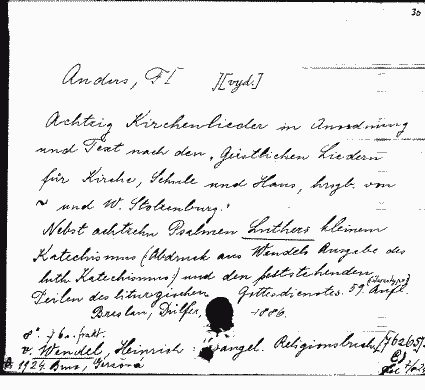 30
Anders, Fl [vyd.]
Achtzig Kirchenlieder in Anordnung
und Text nach den „Geistlichen Liedern
für Kirche, Schule und Haus, hrsgb. von
~ und W. Stolzenburg."
Nebst achtzehn Psalmen Luthers kleinem
Katechismus (Abdruck aus Wendels Ausgabe des
luth. Katechismus) und den feststehenden
Teilen des liturgischen Gottesdienstes. 59. Aufl.
Breslau, Dülfer, 1886.
8°. frakt.
v: Wendel, Heinrich: Evangel. Religionsbuch. [76265]
1924 Brno,